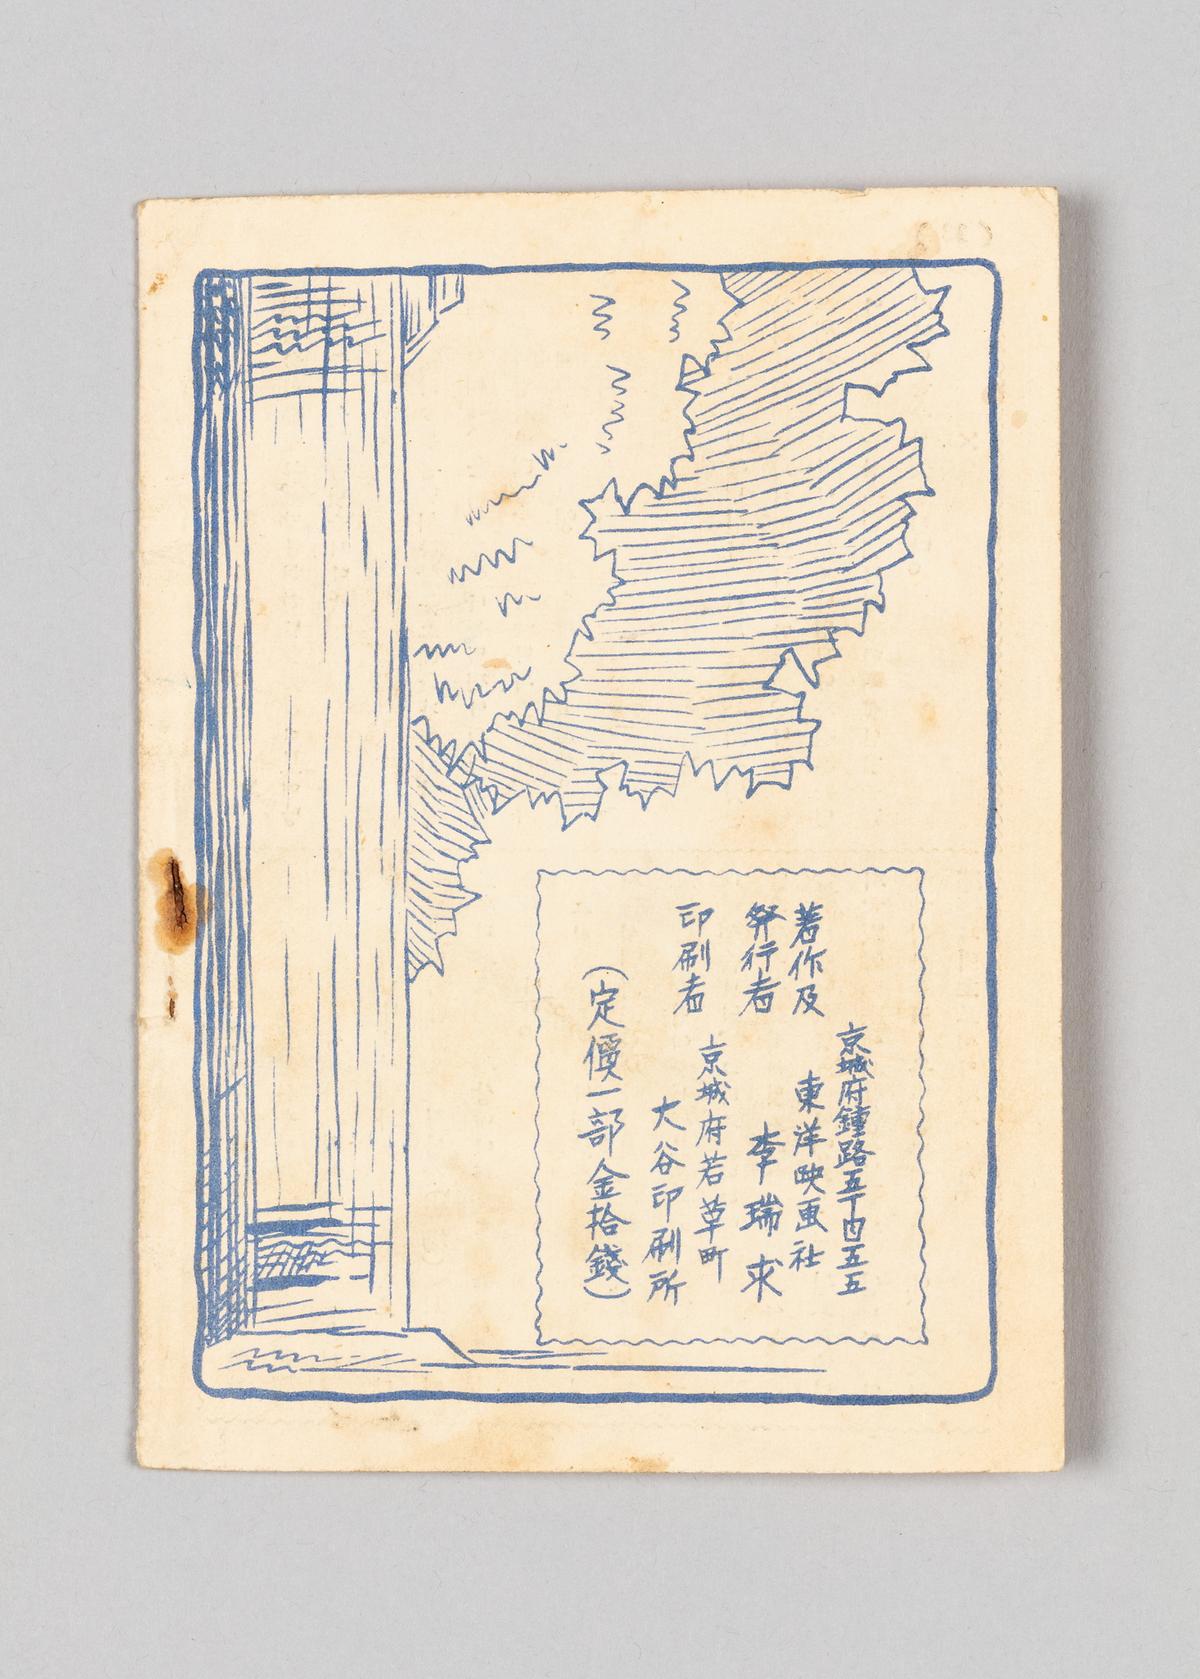 京城府鍾路五丁目五五
著作及 東洋映画社
発行者 李瑞求
京城府若草町
印刷者 大谷印刷所
(定價一部金拾錢)